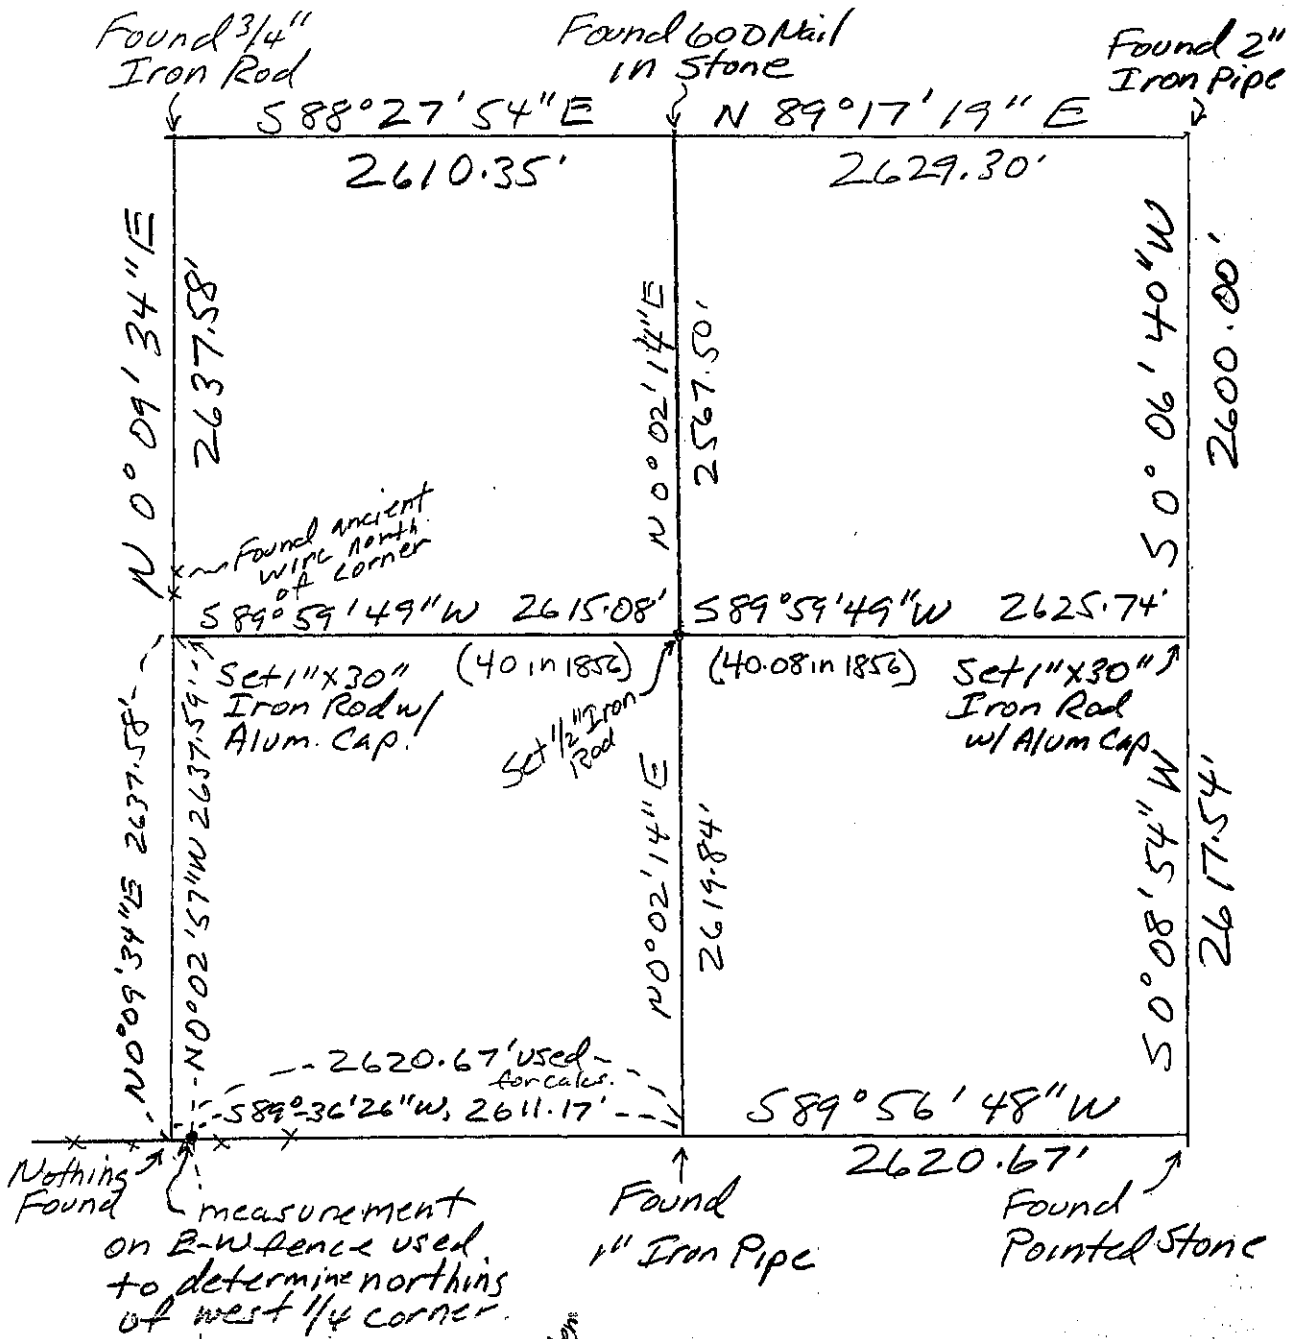 Found 3/4"
Iron Rod
Found 60D Nail
in Stone
Found 2"
Iron Pipe
S 88° 27' 54" E
N 89° 17' 19" E
2610.35'
2629.30'
N 0° 09' 34" E
2637.58'
N 0° 02' 14" E
2567.50'
S 0° 06' 40" W
2600.00'
Found ancient
wire north
of corner
S 89° 59' 49" W 2615.08'
S 89° 59' 49" W 2625.74'
(40 in 1856)
(40.08 in 1856)
Set 1" X 30"
Iron Rod w/
Alum. Cap.
Set 1/2" Iron
Rod
Set 1" X 30"
Iron Rod
w/ Alum Cap
N 0° 09' 34" E 2637.58'
N 0° 02' 57" W 2637.59'
N 0° 02' 14" E
2619.84'
S 0° 08' 54" W
2617.54'
2620.67' used
for calcs.
S 89° 36' 26" W, 2611.17'
S 89° 56' 48" W
2620.67'
Nothing
Found
measurement
on E-W fence used
to determine northing
of west 1/4 corner.
Found
1" Iron Pipe
Found
Pointed Stone